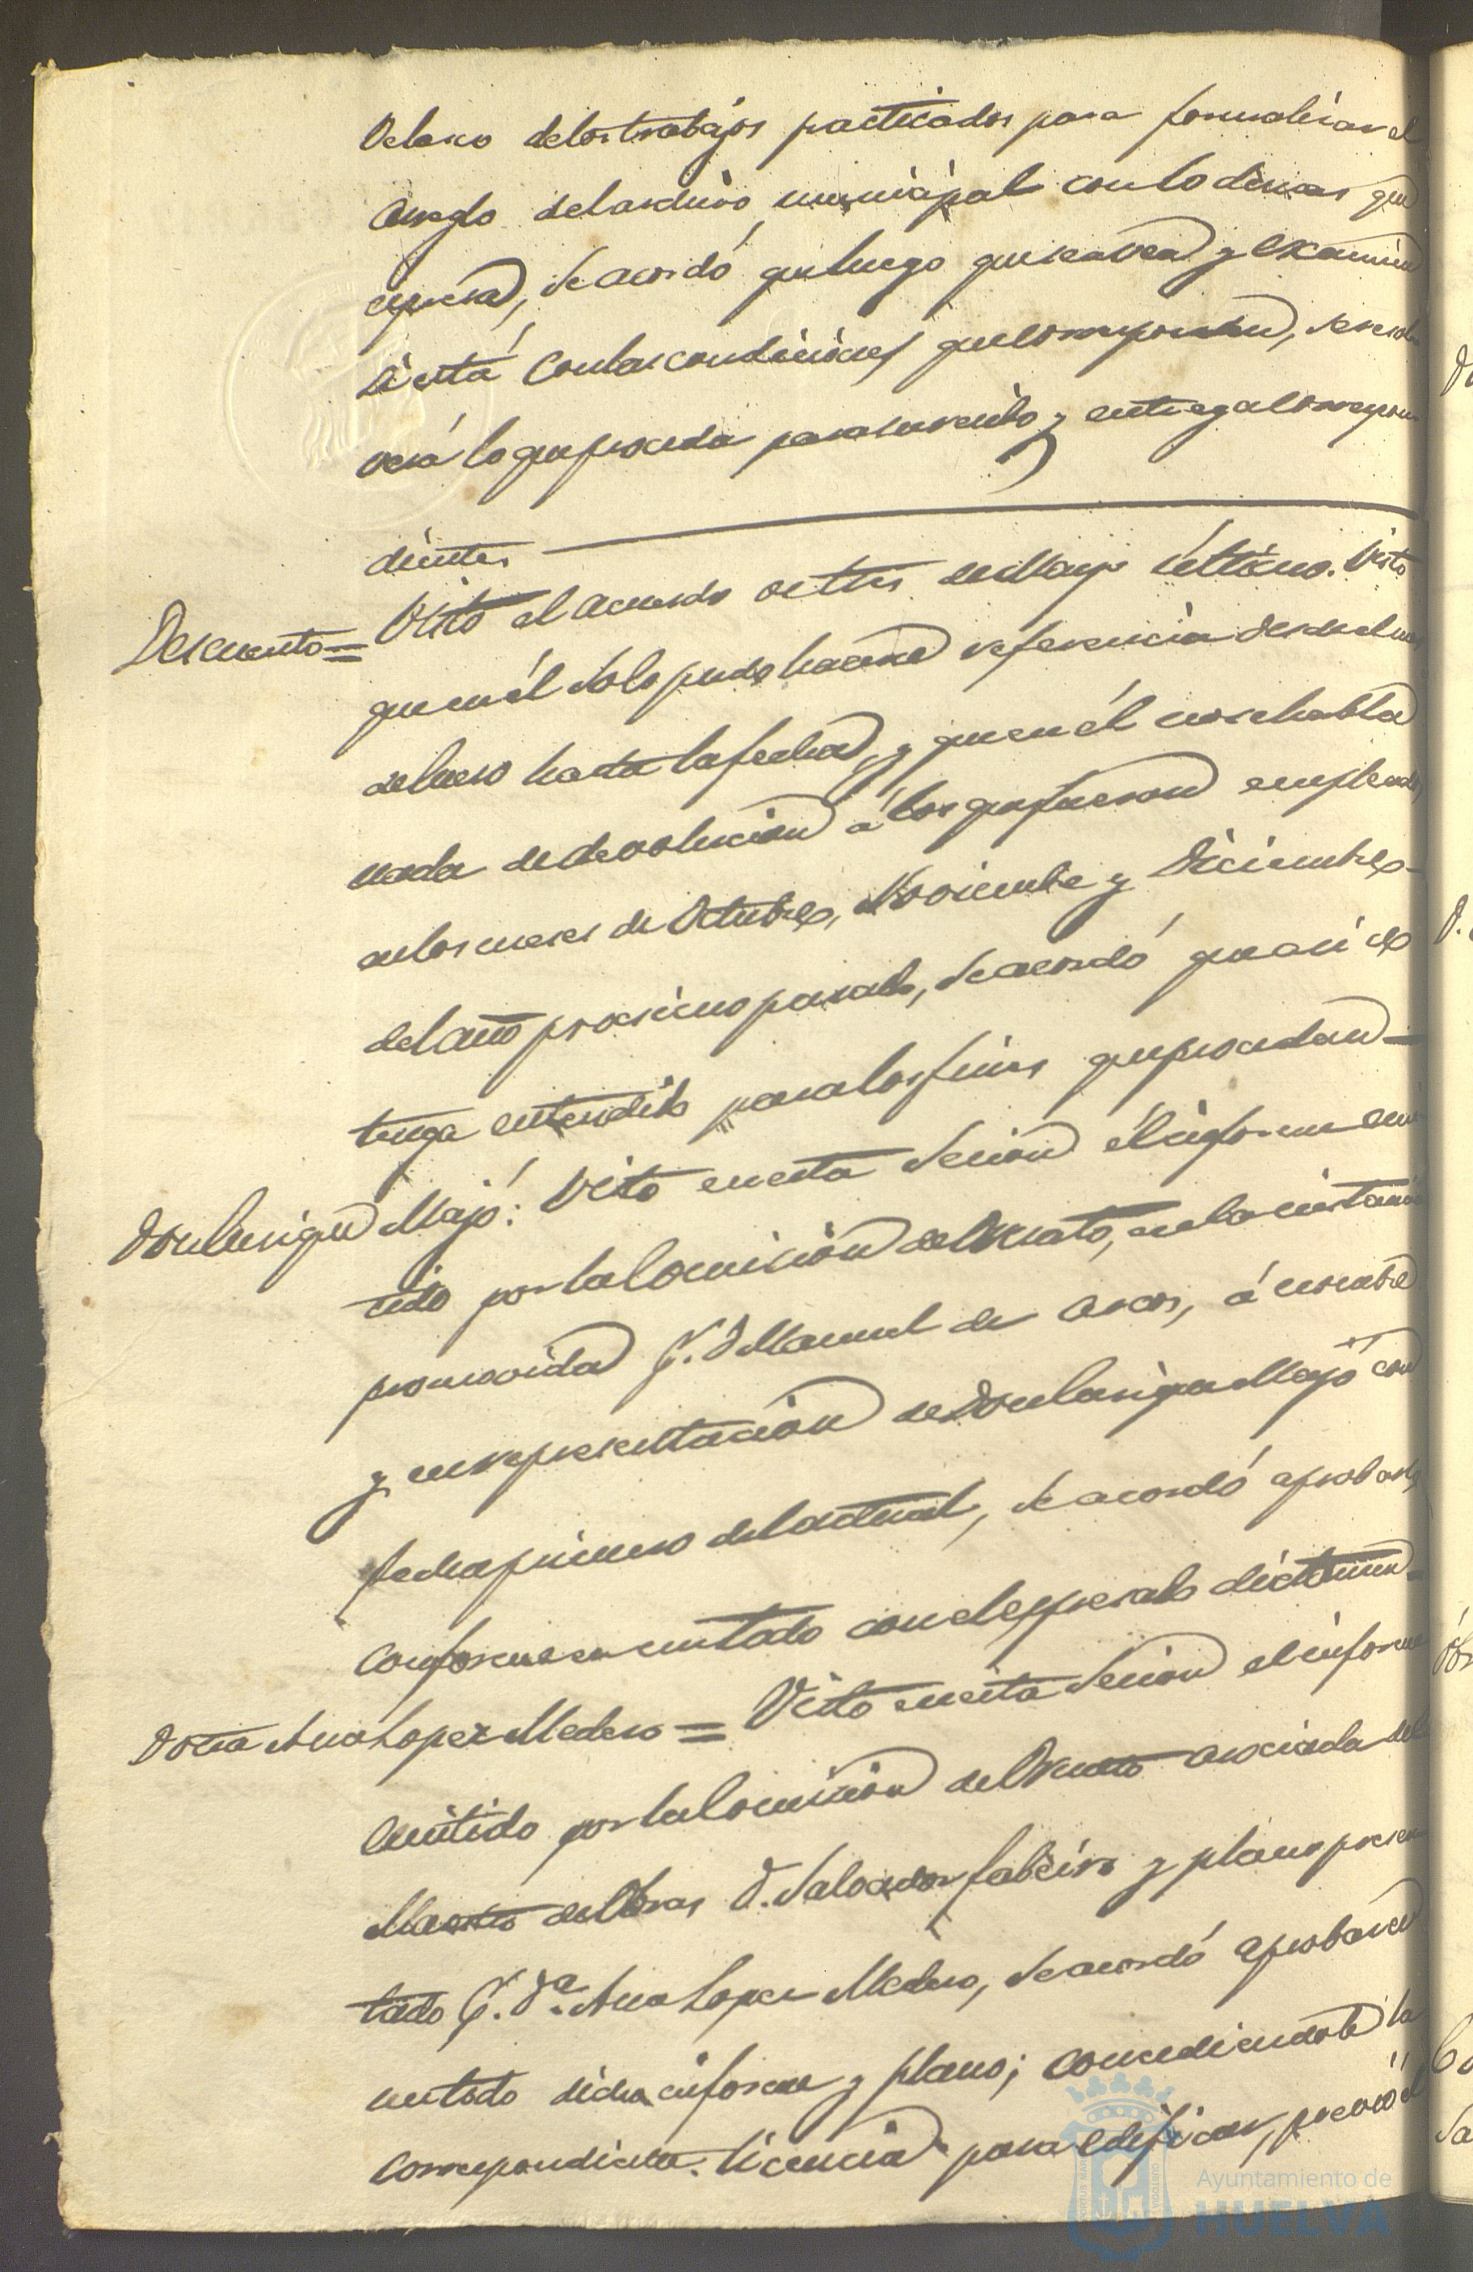 Velasco de los trabajos practicados para formalizar el
arreglo del archivo municipal con lo demas que
espresa, se acordó que luego que se a vea y examine
si está con las condiciones que corresponden, se resol
verá lo que proceda para su recibo y entrega correspon
dientes
Descuento = Visto el acuerdo de tres de Mayo último. Visto
que en él solo pudo hacerse referencia desde el mes
de Enero hasta la fecha, y que en él no se habla
nada de devolucion á los que fueron empleados
en los meses de Octubre, Noviembre y Diciembre
del año procsimo pasado, se acordó que asi se
tenga entendido para los fines que procedan
Don Enrique Majó: Visto en esta Sesion el informe emi
tido por la Comision de Ornato, en la instancia
promovida p.r D. Manuel de Azcas, á nombre
y en representacion de Don Enrique Majó con
fecha primero del actual, se acordó aprobarlo
conforme en un todo con el espresado dictamen
Doña Ana Lopez Medero = Visto en esta Sesion el informe
emitido por la Comision de Ornato asociada del
Maestro de Obras D. Salvador y plano presen
tado p.r D.a Ana Lopez Medero, se acordó aprobar en
un todo dicho informe y plano; concediendole la
correspondiente licencia para edificar, previo el
Ayuntamiento de
HUELVA